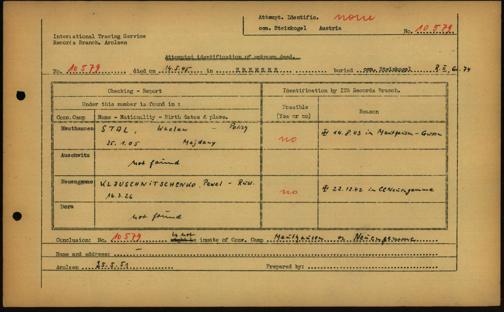 Attempt. Identific. none
International Tracing Service com. Steinkogel Austria No. 10 579
Records Branch, Arolsen
Attempted identification of unknown dead.
No. 10 579 died on 14.5.45 in buried com. Steinkogel
Checking - Report Identification by ITS Records Branch.
Under this number is found in : Possible (Yes or no) Reason
Conc. Camp Name - Nationality - Birth dates & place.
Mauthausen STAL, Wacław - Polish no 14.8.43 in Mauthausen-Gusen
25.1.05 Majdany
Auschwitz not found
Neuengamme KLJUSCHNITSCHENKO, Pawel - Russ. no 22.12.42 in CC Neuengamme
14.3.26
Dora not found
Conclusion: No. 10 579 is not inmate of Conc. Camp Mauthausen or Neuengamme
Name and address: -
Arolsen 25.5.51 Prepared by: